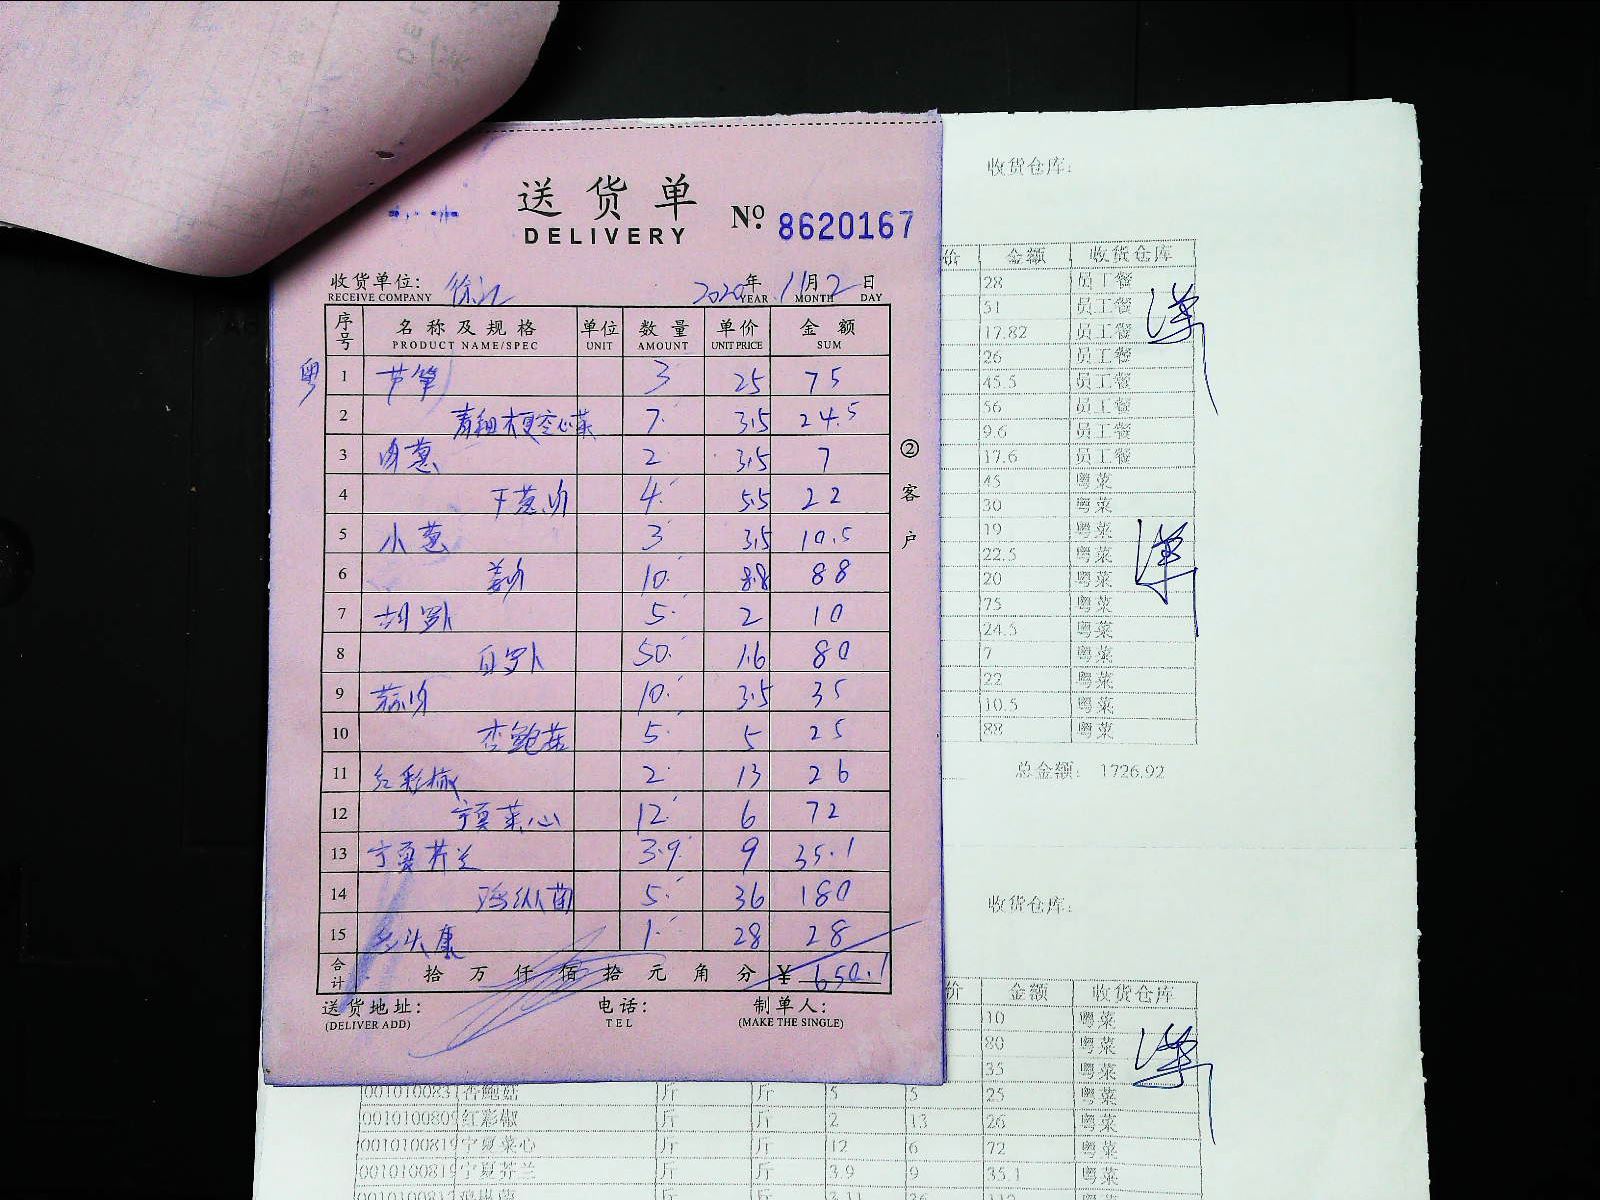 送货单
DELIVERY
№ 8620167
收货单位: 徐汇 2020年11月2日
RECEIVE COMPANY YEAR MONTH DAY
序号 名称及规格 单位 数量 单价 金额
PRODUCT NAME/SPEC UNIT AMOUNT UNIT PRICE SUM
粤 1 芦笋 3 25 75
2 青梗空心菜 7 3.5 24.5
3 肉葱 2 3.5 7
4 干葱 4 5.5 22
5 小葱 3 3.5 10.5
6 姜 10 8.8 88
7 胡罗卜 5 2 10
8 白罗卜 50 1.6 80
9 蒜 10 3.5 35
10 杏鲍菇 5 5 25
11 红彩椒 2 13 26
12 宁夏菜心 12 6 72
13 宁夏芥兰 3.9 9 35.1
14 鸡枞菌 5 36 180
15 1 28 28
合计 拾万仟佰拾元角分 ¥ 650.1
送货地址: 电话: 制单人:
(DELIVER ADD) TEL (MAKE THE SINGLE)
②客户
收货仓库:
价 金额 收货仓库
28 员工餐
31 员工餐
17.82 员工餐
26 员工餐
45.5 员工餐
56 员工餐
9.6 员工餐
17.6 员工餐
45 粤菜
30 粤菜
19 粤菜
22.5 粤菜
20 粤菜
75 粤菜
24.5 粤菜
7 粤菜
22 粤菜
10.5 粤菜
88 粤菜
总金额: 1726.92
收货仓库:
价 金额 收货仓库
10 粤菜
80 粤菜
35 粤菜
杏鲍菇 斤 斤 5 5 25 粤菜
红彩椒 斤 斤 2 13 26 粤菜
宁夏菜心 斤 斤 12 6 72 粤菜
宁夏芥兰 斤 斤 3.9 9 35.1 粤菜